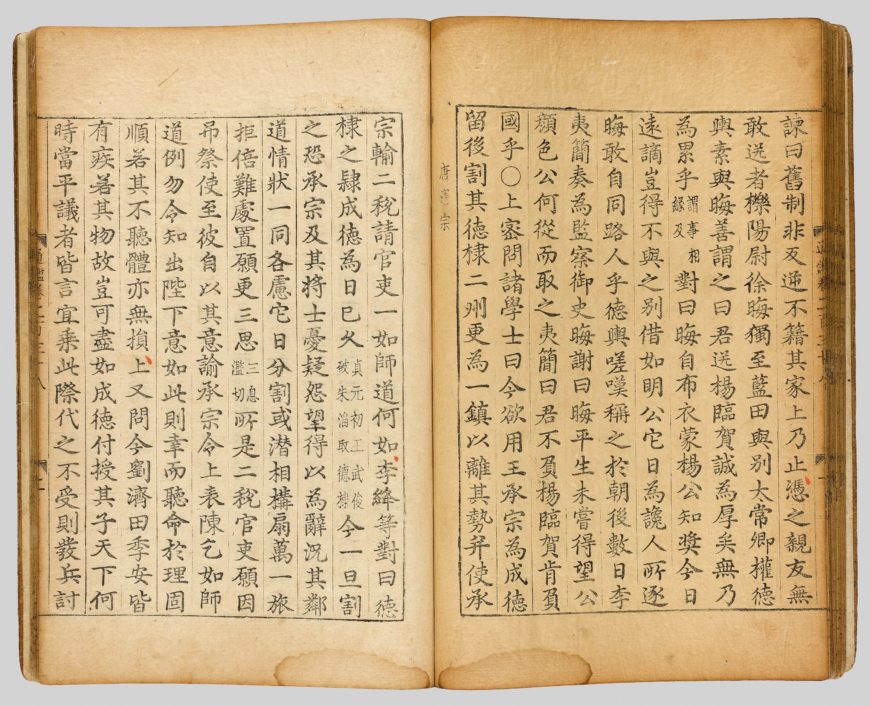 諫曰舊制非反逆不籍其家上乃止憑之親友無
敢送者櫟陽尉徐晦獨至藍田與別大常卿權德
輿素與晦善謂之曰君送楊臨賀誠為厚矣無乃
為累乎謂事相緣及對曰晦自布衣蒙楊公知奬今日
遠謫豈得不與之別借如明公它日為讒人所逐
晦敢自同路人乎德輿嗟嘆稱之於朝後數日李
夷簡奏為監察御史晦謝曰晦平生未嘗得望公
顏色公何從而取之夷簡曰君不負楊臨賀肯負
國乎○上密問諸學士曰今欲用王承宗為成德
留後割其德棣二州更為一鎮以離其勢并使承
唐憲宗
宗輸二稅請官吏一如師道何如李絳等對曰德
棣之隸成德為日已久貞元初王武俊破朱滔取德棣今一旦割
之恐承宗及其將士憂疑怨望得以為辭況其鄰
道情狀一同各慮它日分割或潜相構扇萬一旅
拒倍難處置願更三思三息濫切所是二稅官吏願因
吊祭使至彼自以其意諭承宗令上表陳乞如師
道例勿令知出陛下意如此則幸而聽命於理固
順若其不聽體亦無損上又問今劉濟田季安皆
有疾若其物故豈可盡如成德付授其子天下何
時當平議者皆言宜乘此際代之不受則發兵討